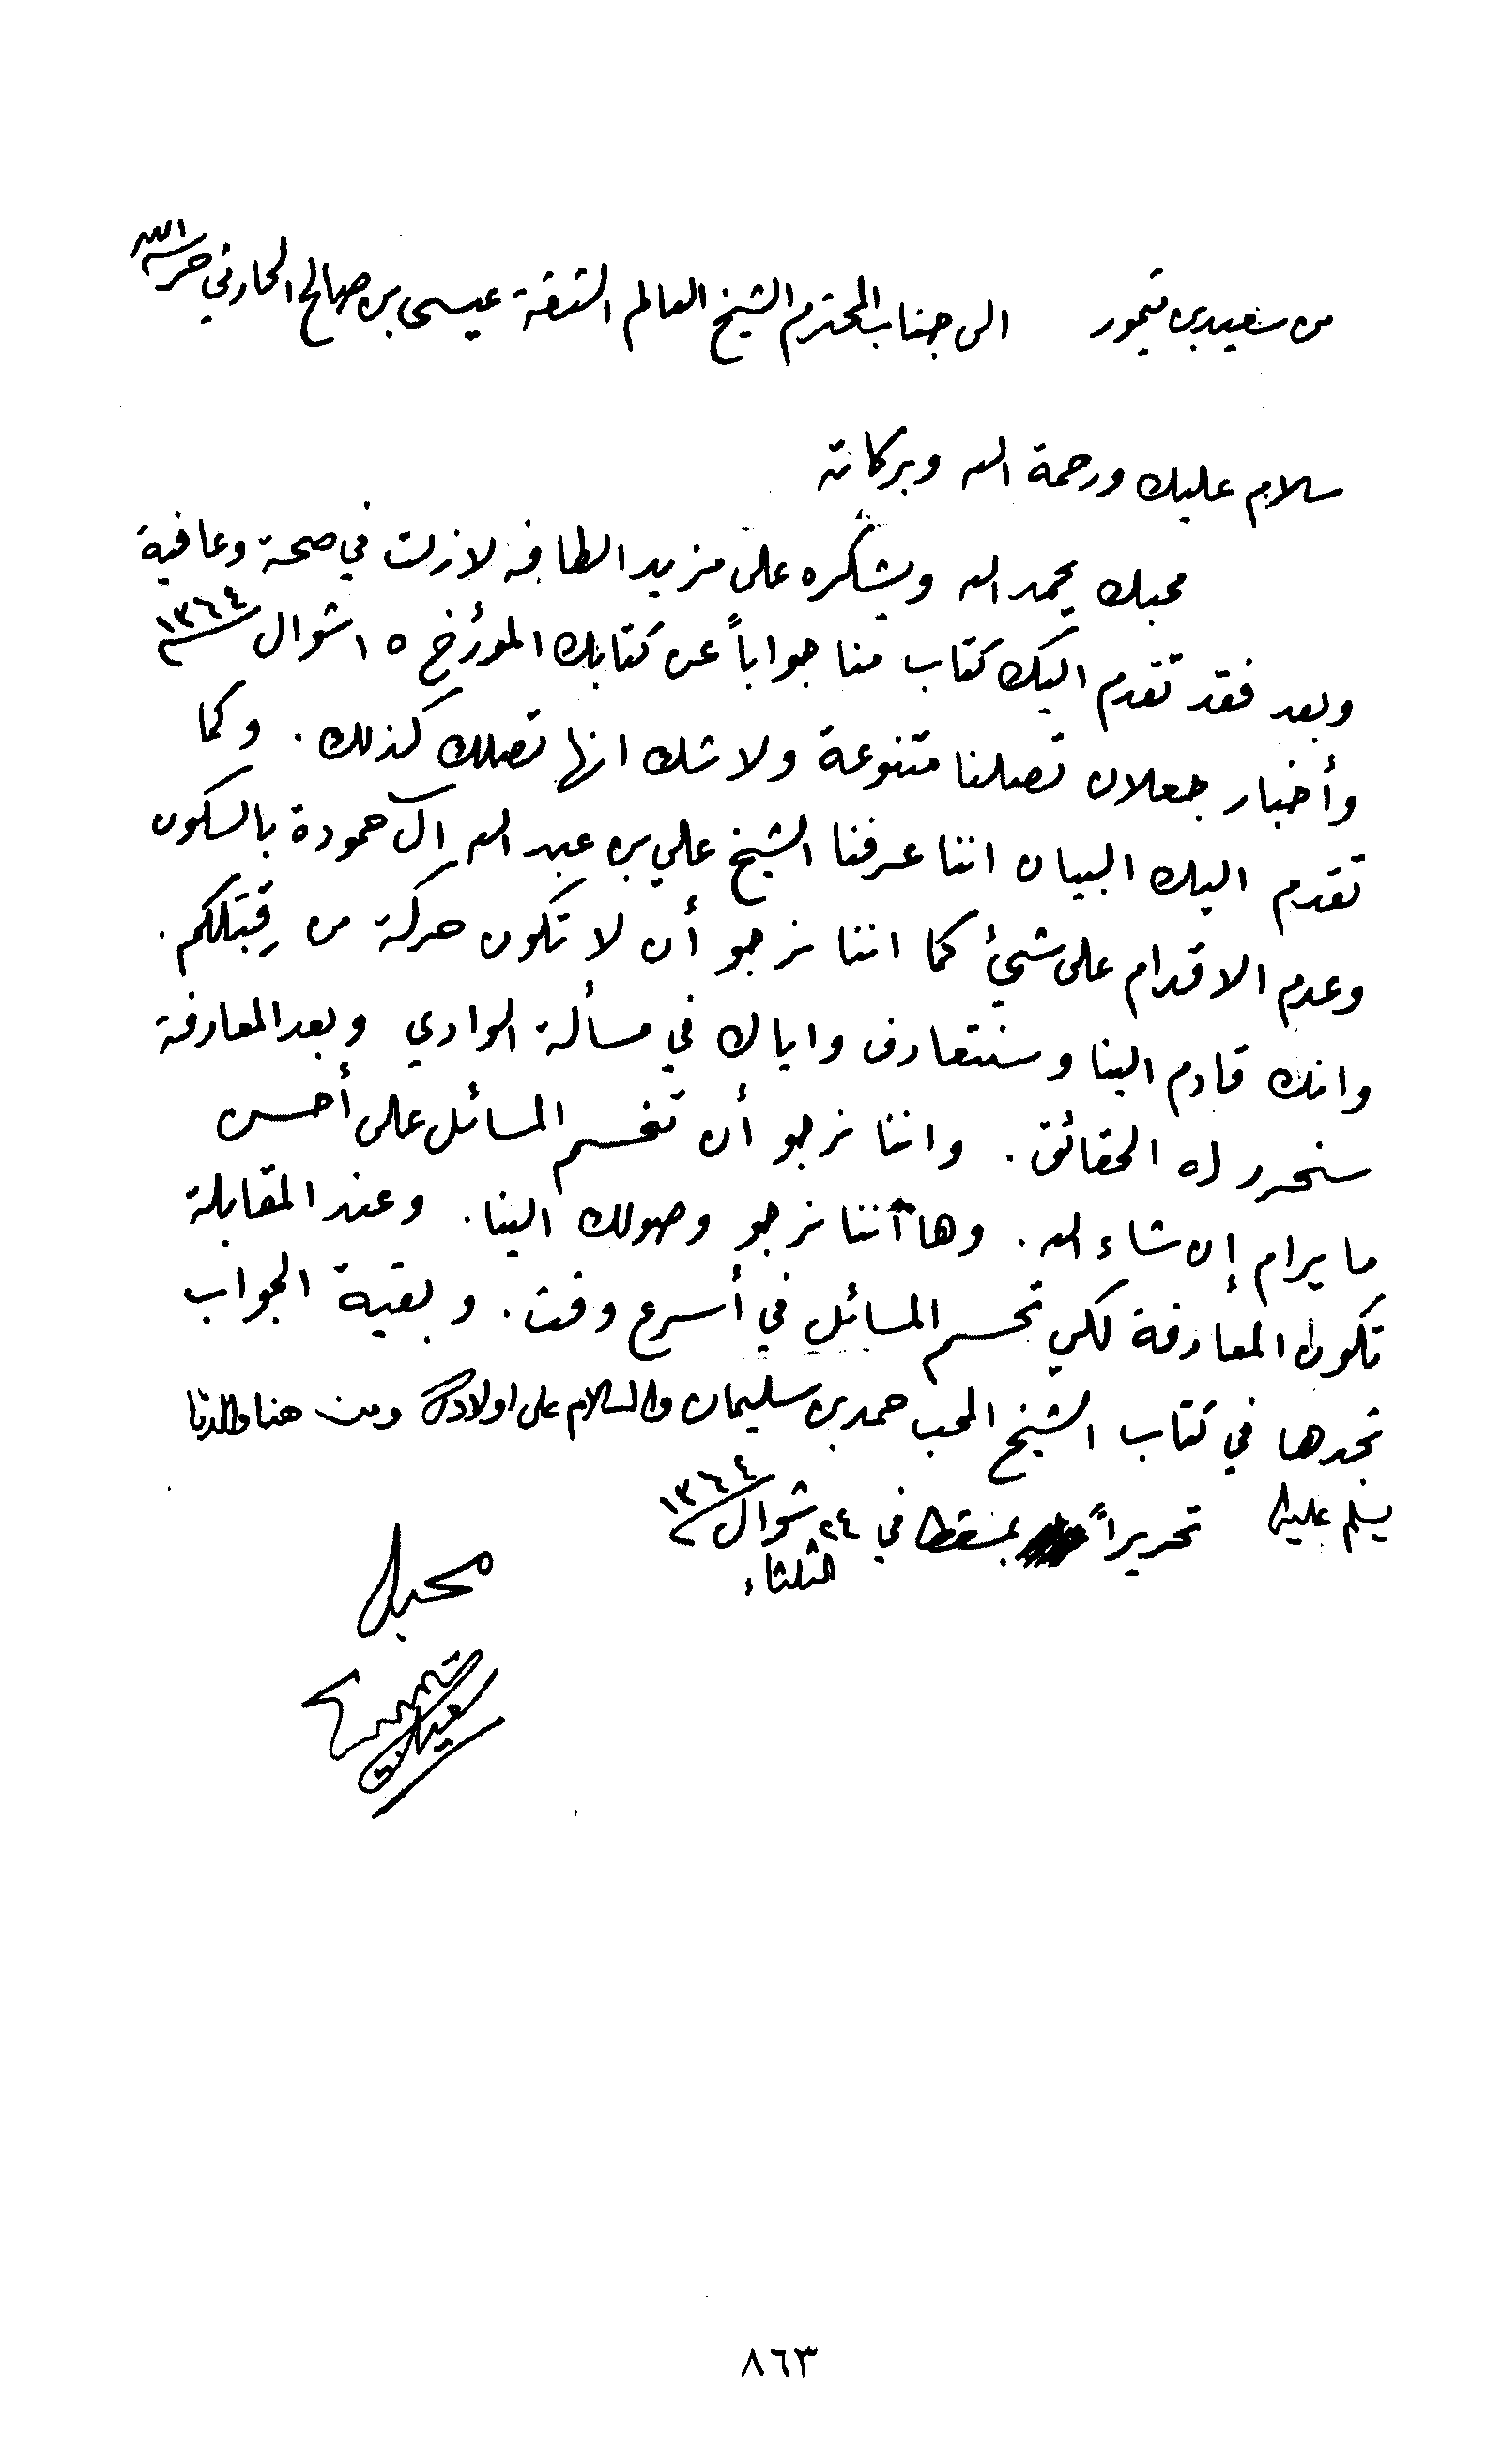 من سعيد بن تيمور الى جناب المحترم الشيخ العالم الثقة عيسى بن صالح الحارثي حرسه الله
سلام عليك ورحمة الله وبركاته
محبك يحمد الله ويشكره على مزيد الطافه لازلت في صحة وعافية
وبعد فقد تقدم اليك كتاب منا جواباً عن كتابك المؤرخ ١٥ شوال ١٣٦٤
وأخبار جعلان تصلنا متنوعة ولا شك انها تصلك كذلك . وكما
تقدم اليك البيان اننا عرفنا الشيخ علي بن عبد الله آل حمودة بالسكون
وعدم الاقدام على شيئ كما اننا نرجو أن لا تكون حركة من قِبَلكم .
وانك قادم الينا وسنتعارف واياك في مسألة الوادي وبعد المعارفة
سنحرر له الحقائق . واننا نرجو أن تنحسم المسائل على أحسن
ما يرام إن شاء الله . وها أننا نرجو وصولك الينا . وعند المقابلة
تكون المعارفة لكي تحسم المسائل في أسرع وقت . وبقية الجواب
تجدها في كتاب الشيخ المحب حمد بن سليمان والسلام على اولادك ومن هنا والدنا
يسلم عليك تحريراً بمسقط في ٢٤ شوال ١٣٦٤
الثلثاء
محبك
سعيد بن تيمور
٨٦٣